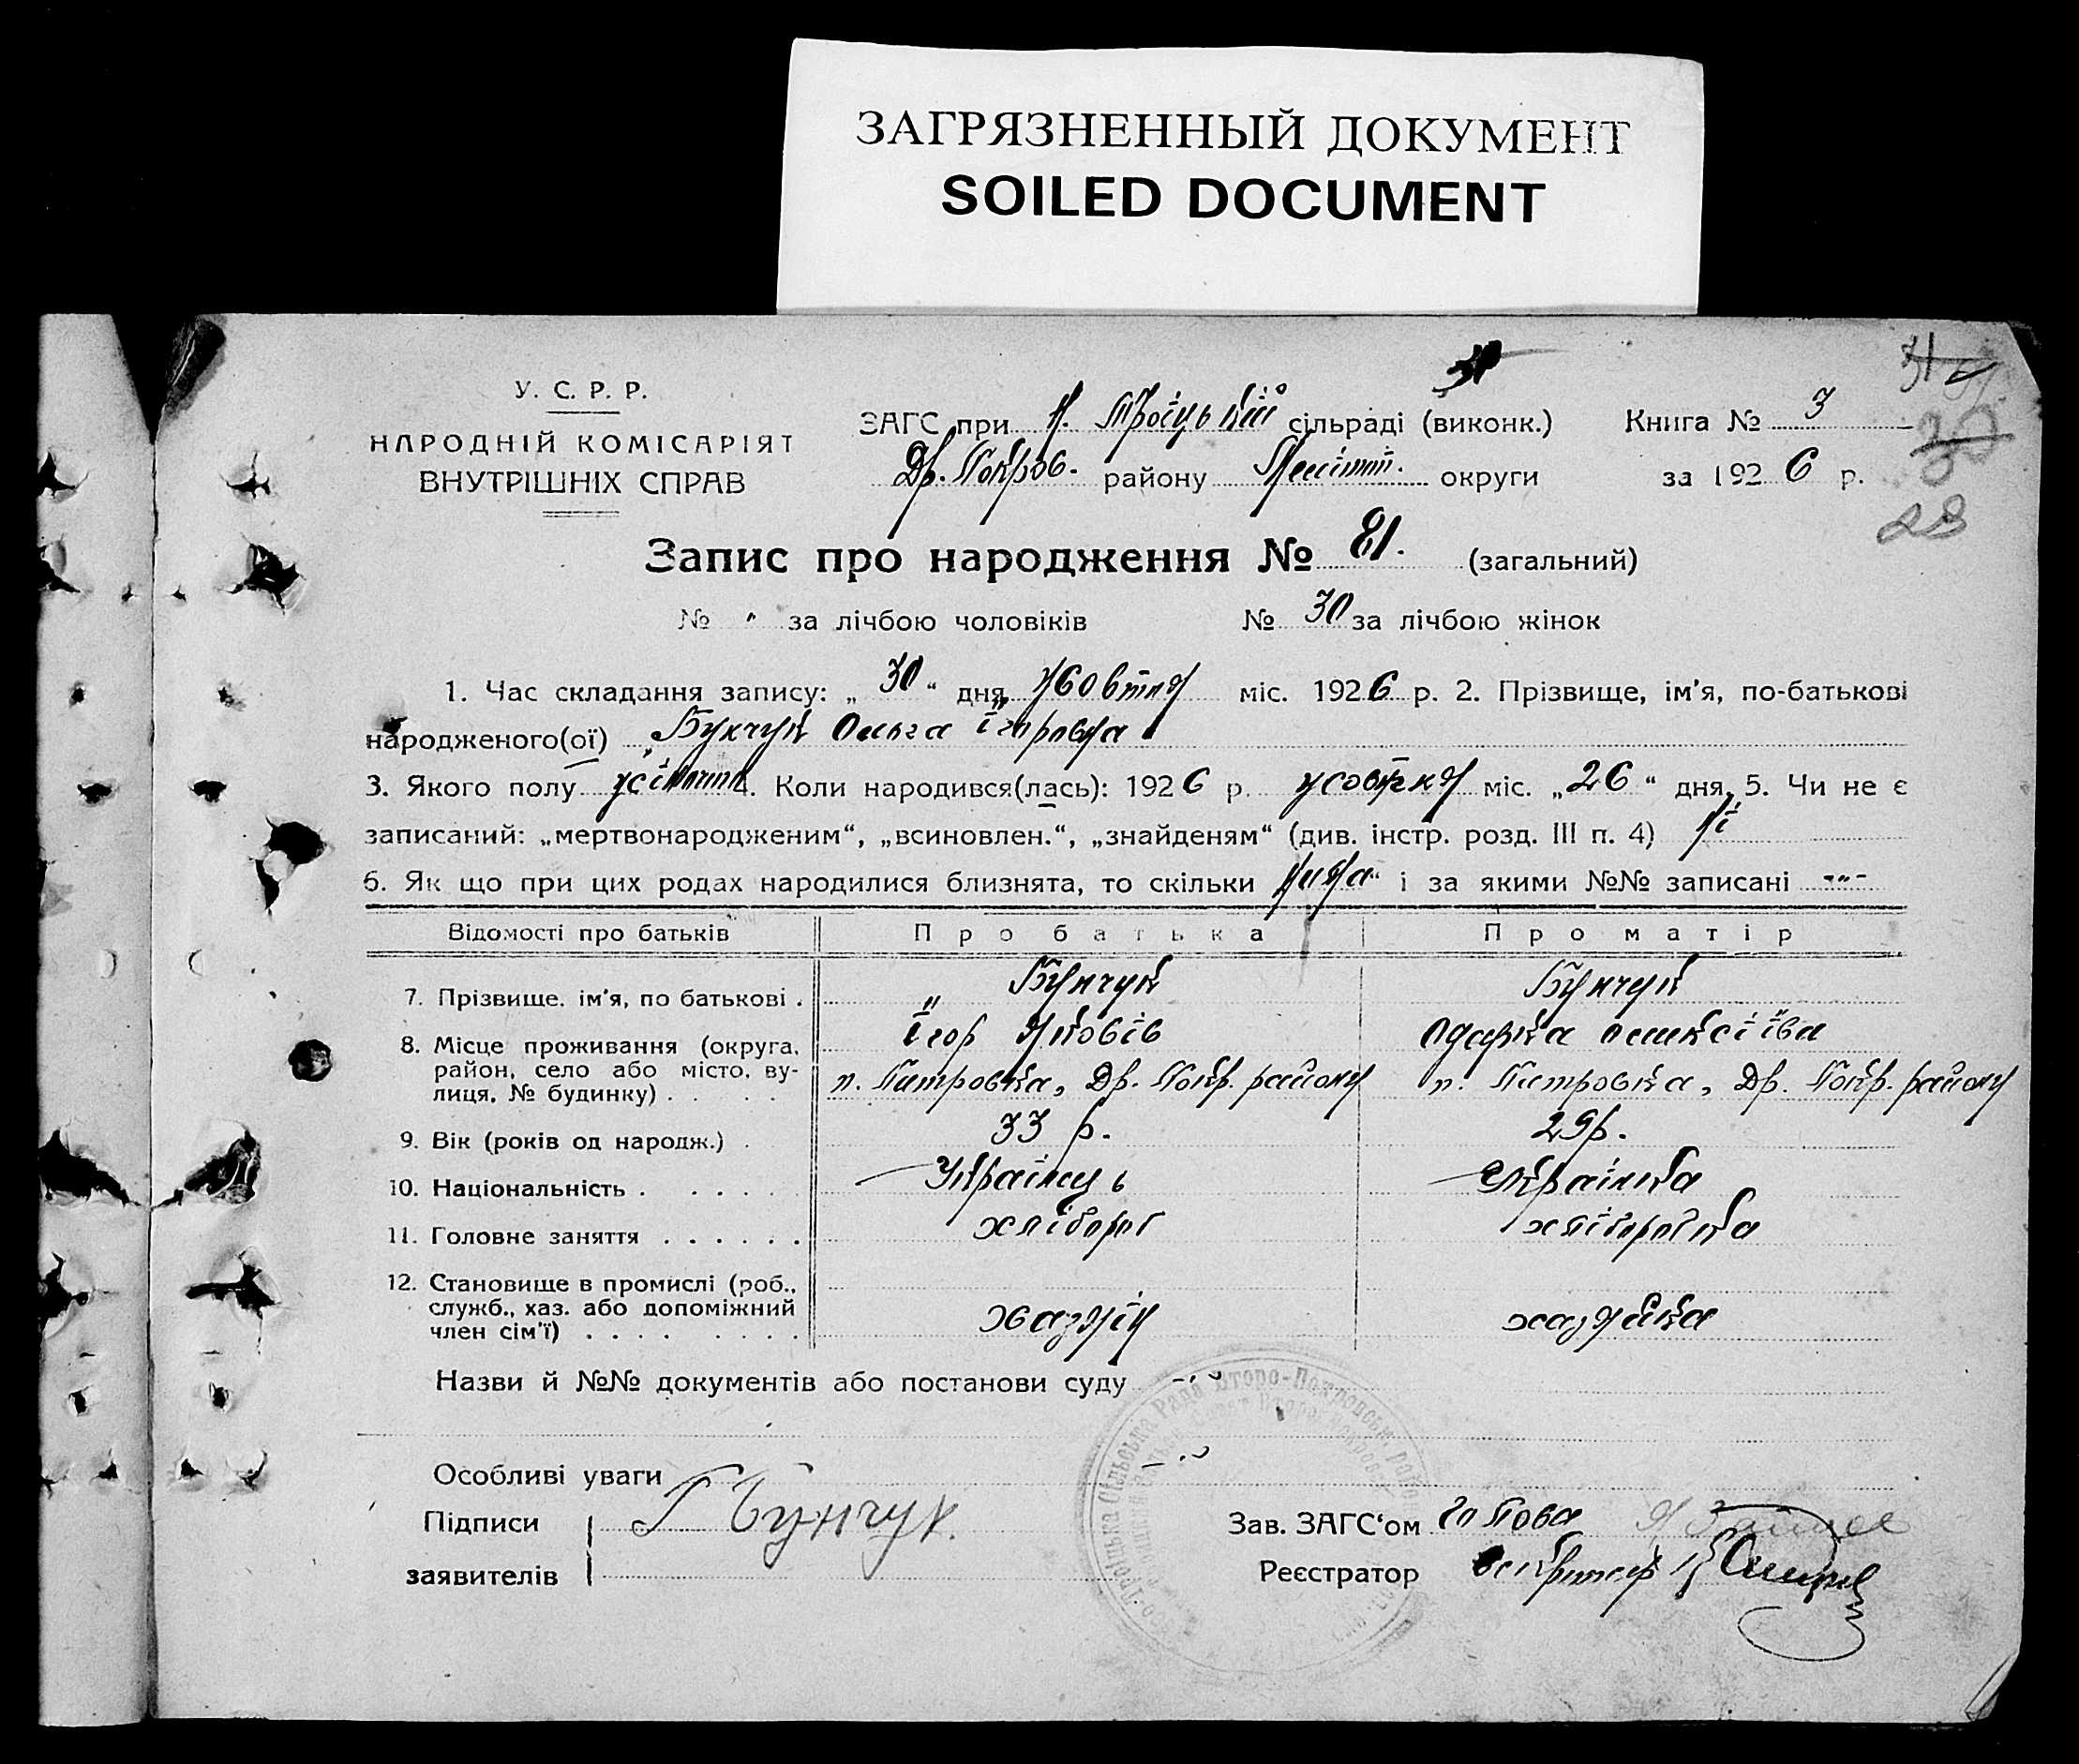 ЗАГРЯЗНЕННЫЙ ДОКУМЕНТ
SOILED DOCUMENT
У. С. Р. Р.
НАРОДНІЙ КОМІСАРІЯТ
ВНУТРІШНІХ СПРАВ
ЗАГС при Н. Троіцькій сільраді (виконк.) Книга № 3
Др. Покров. району округи за 1926 р.
28
Запис про народження № 81. (загальний)
№ " за лічбою чоловіків № 30 за лічбою жінок
1. Час складання запису: „30“ дня жовтня міс. 1926 р. 2. Прізвище, ім'я, по-батькові
народженого(ої) Бунчук Ольга Ігоровна
3. Якого полу жіночт 4. Коли народився(лась): 1926 р. жовтня міс. „26“ дня, 5. Чи не є
записаний: „мертвонародженим“, „всиновлен.“, „знайденям“ (див. інстр. розд. III п. 4) ні
6. Як що при цих родах народилися близнята, то скільки нима і за якими №№ записані -"-
Відомості про батьків Про батька Про матір
7. Прізвище. ім'я, по батькові . Бунчук Бунчук
Ігор Яковів Одарка Олексіїва
8. Місце проживання (округа, район, село або місто, вулиця, № будинку) . . . . п. Питровка, Др. Покр. району п. Питровка, Др. Покр. району
9. Вік (років од народж.) . 33 р. 29 р.
10. Національність . . . . . Українць Українка
11. Головне заняття . . . . . . хлібороб хліборобка
12. Становище в промислі (роб., служб., хаз. або допоміжний член сім'ї) . . . . . . . . хазяїн хазяйка
Назви й №№ документів або постанови суду -"-
Особливі уваги -"-
Підписи Г Бунчук.
заявителів
Зав. ЗАГС'ом голова
Реєстратор секритар
Троіцька Сільська Рада Второ-Покровськ. району